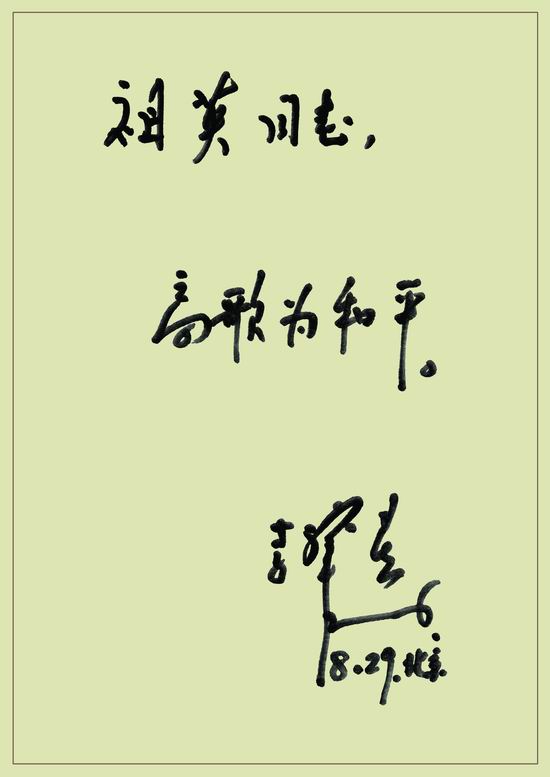 祖英同志，
高歌为和平。
8.29.北京